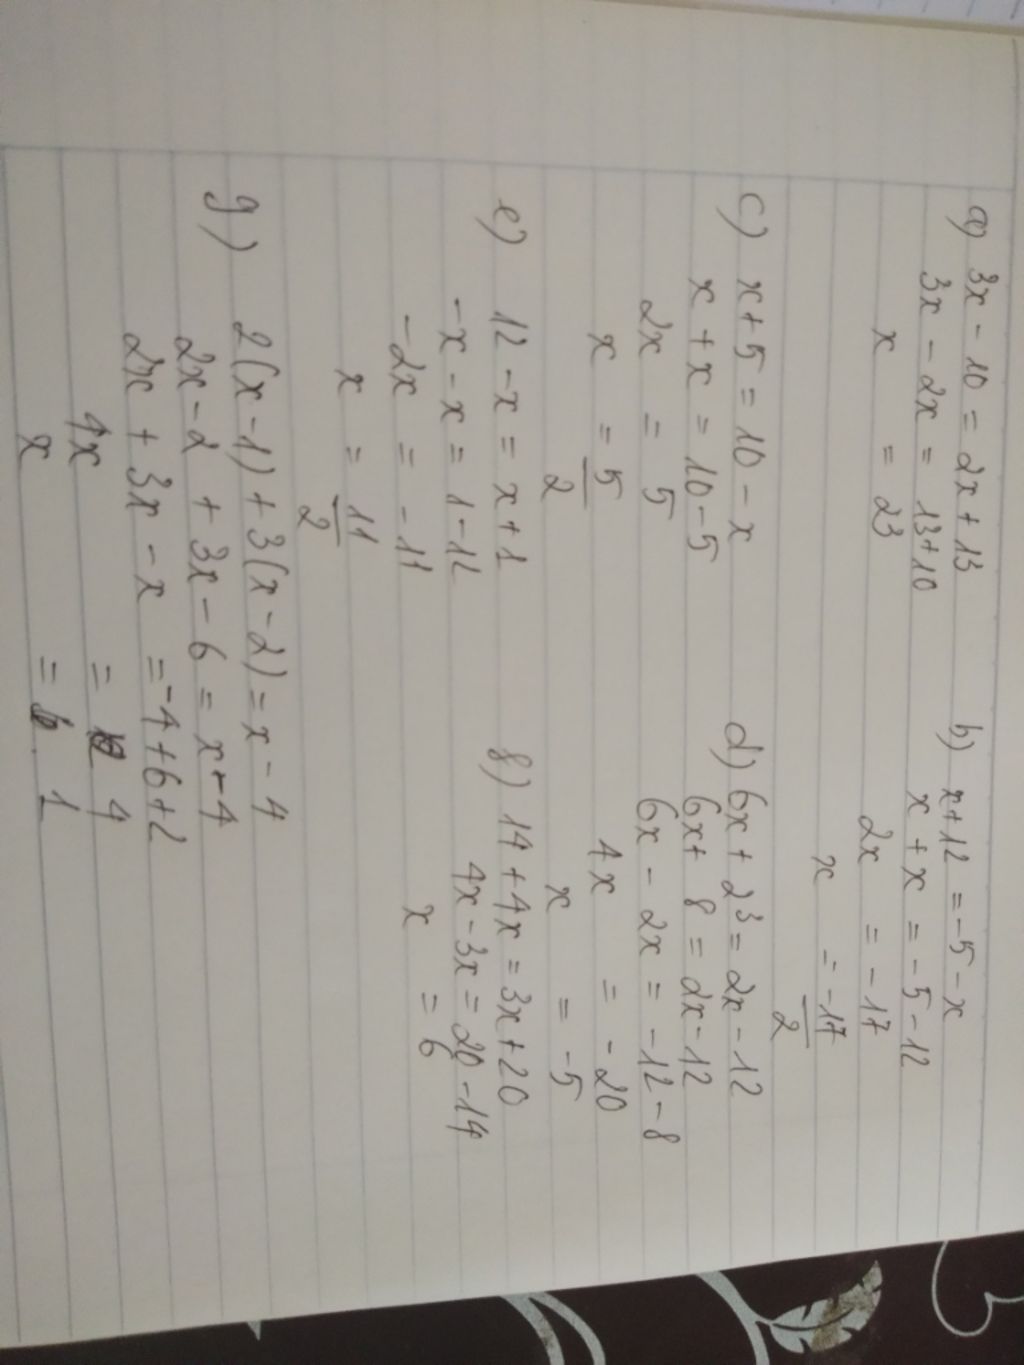 a) 3x - 10 = 2x + 13
3x - 2x = 13 + 10
x = 23
b) x + 12 = -5 - x
x + x = -5 - 12
2x = -17
x = -17/2
c) x + 5 = 10 - x
x + x = 10 - 5
2x = 5
x = 5/2
d) 6x + 2³ = 2x - 12
6x + 8 = 2x - 12
6x - 2x = -12 - 8
4x = -20
x = -5
e) 12 - x = x + 1
-x - x = 1 - 12
-2x = -11
x = 11/2
f) 14 + 4x = 3x + 20
4x - 3x = 20 - 14
x = 6
g) 2(x - 1) + 3(x - 2) = x - 4
2x - 2 + 3x - 6 = x - 4
2x + 3x - x = -4 + 6 + 2
4x = 4
x = 1